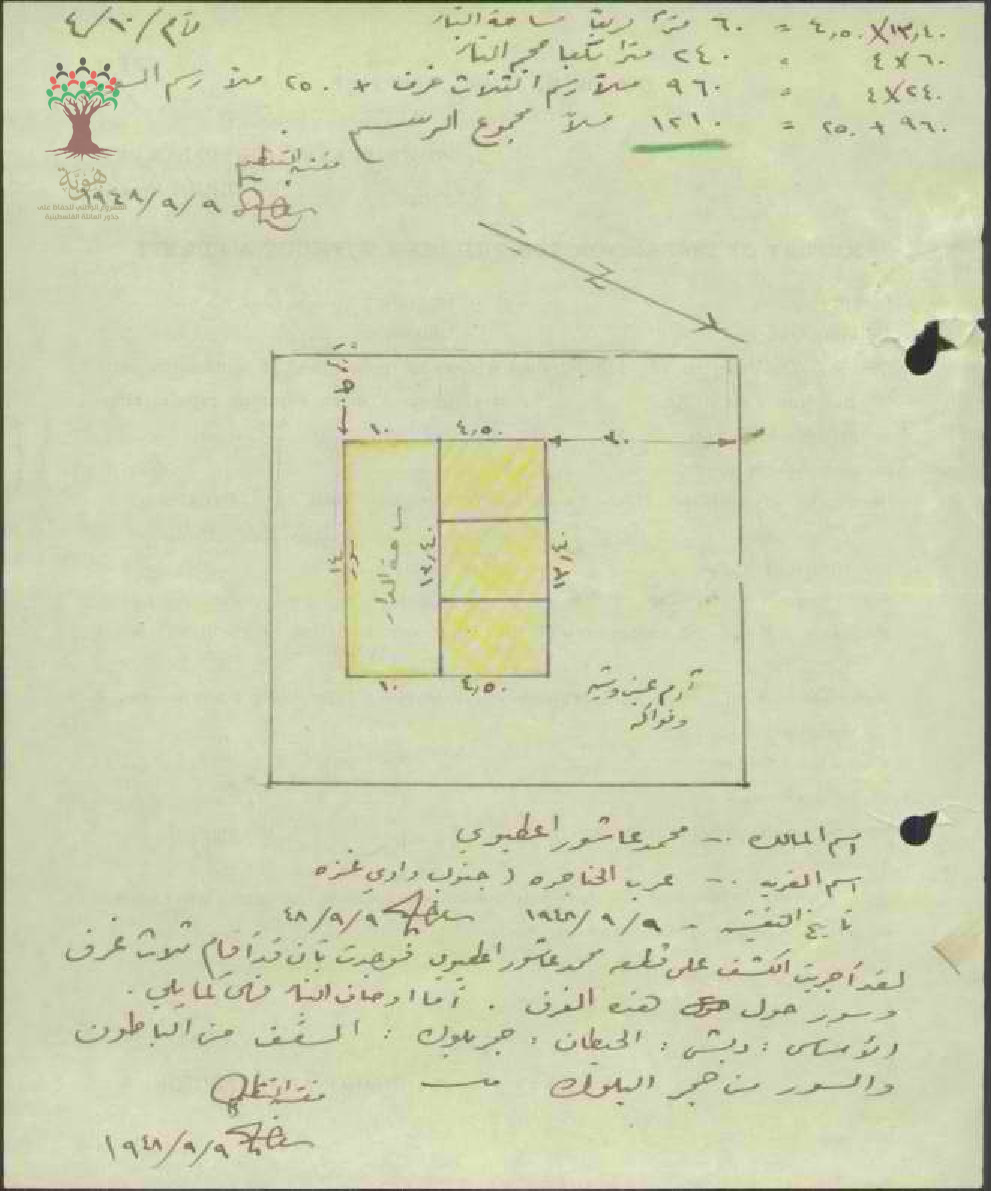 م/١٠/٤
١٣,٤٠ X ٤,٥٠ = ٦٠ متراً مربعاً مساحة البناء
٦٠ X ٤ = ٢٤٠ متراً مكعباً حجم البناء
٢٤٠ X ٤ = ٩٦٠ ملاً رسم الثلاث غرف + ٢٥٠ ملاً رسم
٩٦٠ + ٢٥٠ = ١٢١٠ ملاً مجموع الرسم
مفتش التنظيم
١٩٤٨/٩/٩
هوية
المشروع الوطني للحفاظ على
جذور العائلة الفلسطينية
١٠
٤,٥٠
٣٠
١٤
سور
ساحة الدار
١٣,٤٠
١٣,٤٠
١٠
٤,٥٠
كرم عنب وتين
وفواكه
اسم المالك :- محمد عاشور اعطيوي
اسم القريه :- عرب الحناجره ( جنوب وادي غزه
تاريخ التفتيش - ١٩٤٨/٩/٩ ٤٨/٩/٩
لقد أجريت الكشف على قطعه محمد عاشور اعطيوي فوجدت بأن قد أقام ثلاث غرف
وسور حول هذه الغرف . أما اوصاف البناء فهي كما يلي .
الأساس : دبش : الحيطان : حجر بلوك : السقف من الباطون
والسور من حجر البلوك
مفتش التنظيم
١٩٤٨/٩/٩